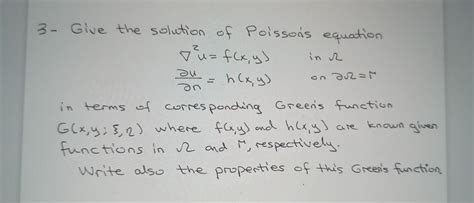 3- Give the solution of Poisson's equation
∇²u = f(x,y) in Ω
∂u/∂n = h(x,y) on ∂Ω=Γ
in terms of corresponding Green's function
G(x,y; ξ,η) where f(x,y) and h(x,y) are known given
functions in Ω and Γ, respectively.
Write also the properties of this Green's function.